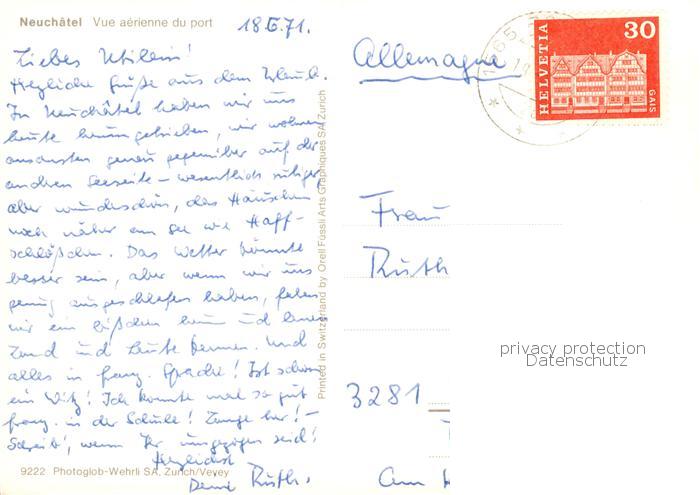 Neuchâtel Vue aérienne du port
18.6.71.
Liebes Uhilein!
Herzliche Grüße aus dem Urlaub.
In Neuchâtel haben wir uns
heute herumgetrieben, wir wohnen
ansonsten genau gegenüber auf der
andren Seeseite – wesentlich ruhiger
aber wunderschön, das Häuschen
noch näher am See wie Haff-
schlößchen. Das Wetter könnte
besser sein, aber wenn wir uns
genug ausgeschlafen haben, fahren
wir ein bißchen herum und lernen
Land und Leute kennen. Und
alles in franz. Sprache! Ist schon
ein Witz! Ich konnte mal so gut
franz. in der Schule! Lange her! –
Schreib', wenn Ihr umgezogen seid!
Herzlichst
Deine Ruth.
9222 Photoglob-Wehrli SA, Zürich/Vevey
Printed in Switzerland by Orell Füssli Arts Graphiques SA, Zürich
Allemagne
1565
HELVETIA
30
GAIS
Frau
Ruth
3281
Am
privacy protection
Datenschutz